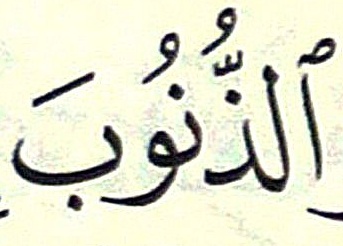 ٱلذُّنُوبَ